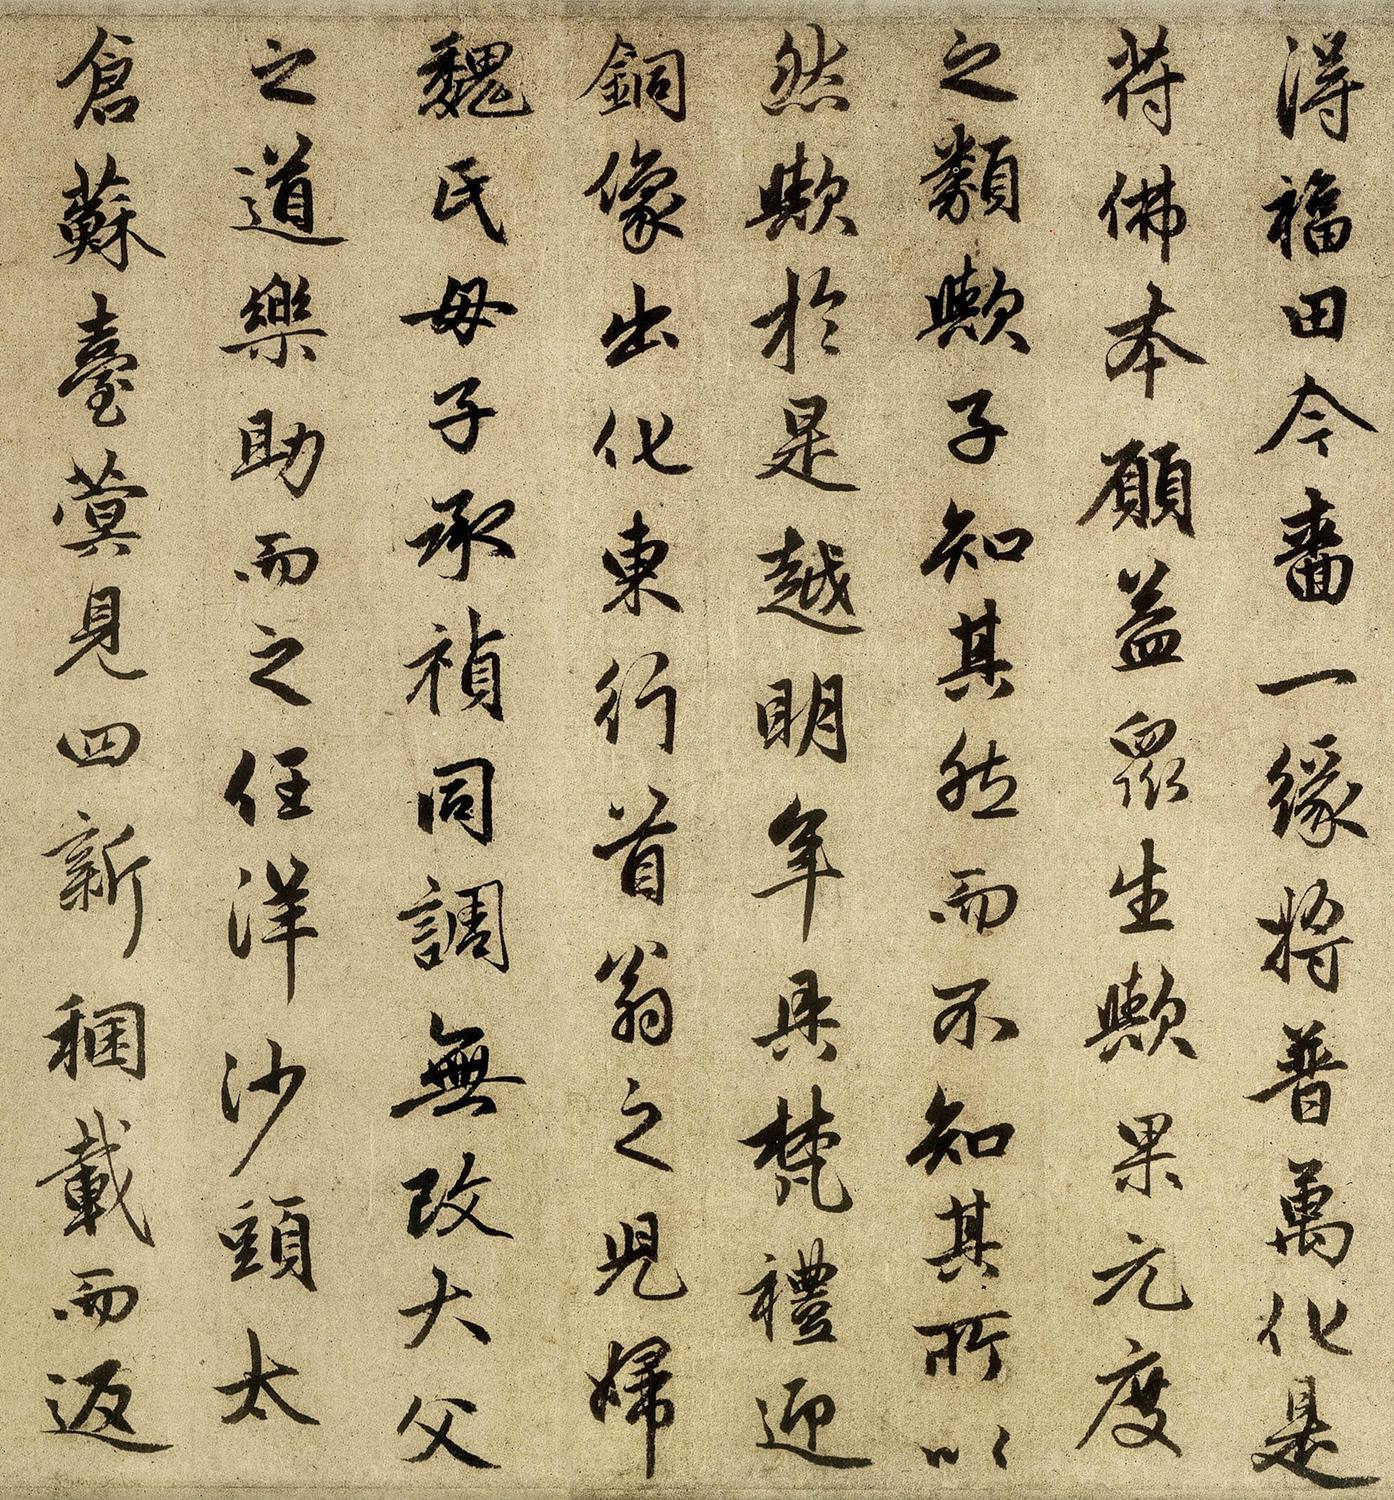 得福田今啬一緣將普萬化是
符佛本願益眾生歟果元度
之類歟子知其然而不知其所以
然歟於是越明年具梵禮迎
銅像出化東行首翁之兒婦
魏氏母子承禎同調無改大父
之道樂助而之任洋沙頭太
倉蘇臺蓂見四新稇載而返